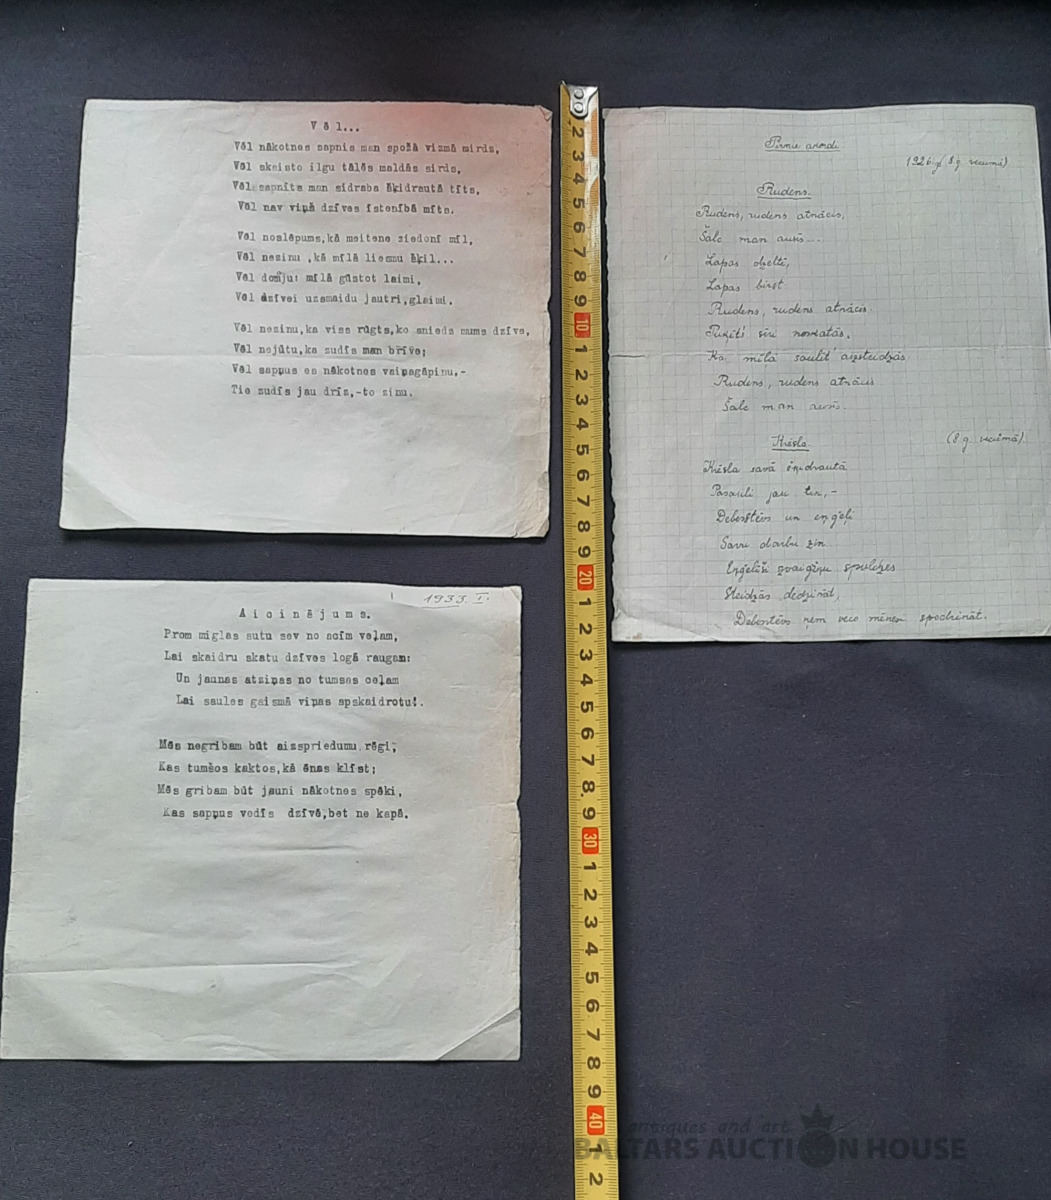 V ē l...
Vēl nākotnes sapnis man spožā vizmā mirdz,
Vēl skaisto ilgu tālēs maldās sirds,
Vēl sapnīts man sidraba šķidrautā tīts,
Vēl nav viņā dzīves īstenībā mīts.
Vēl noslēpums,kā meitene ziedonī mīl,
Vēl nezinu ,kā mīlā liesmu šķil...
Vēl domāju: mīlā gūstot laimi,
Vēl dzīvei uzsmaidu jautri,glaimi.
Vēl nezinu,ka viss rūgts,ko sniedz mums dzīve,
Vēl nejūtu,ka zudīs man brīve;
Vēl sapņus es nākotnes vaiņagā pinu,-
Tie zudīs jau drīz,-to zinu.
1933. I.
A i c i n ā j u m s.
Prom miglas autu sev no acīm veļam,
Lai skaidru skatu dzīves logā raugam:
Un jaunas atziņas no tumsas ceļam
Lai saules gaismā viņas apskaidrotu!.
Mēs negribam būt aizspriedumu rēgi,
Kas tumšos kaktos,kā ēnas klīst;
Mēs gribam būt jauni nākotnes spēki,
Kas sapņus vedīs dzīvē,bet ne kapā.
Pirmie akordi.
1926.g. (8.g. vecumā)
Rudens.
Rudens, rudens atnācis,
Šalc man ausīs...
Lapas dzeltē,
Lapas birst.
Rudens, rudens atnācis.
Puķīti sēri noskatās,
Ka mīļā saulīt aizsteidzās
Rudens, rudens atnācis
Šalc man ausīs.
Krēsla.
(8 g. vecumā)
Krēsla savā šķidrautā
Pasauli jau tin,-
Debestēvs un eņģeļi
Savu darbu zin.
Eņģelīši zvaigžņu spuldzes
Steidzās dedzināt,
Debestēvs ņem veco mēnesi spodrināt.
1 2 3 4 5 6 7 8 9 10 1 2 3 4 5 6 7 8 9 20 1 2 3 4 5 6 7 8 9 30 1 2 3 4 5 6 7 8 9 40 1 2
antiques and art
BALTARS AUCTION HOUSE